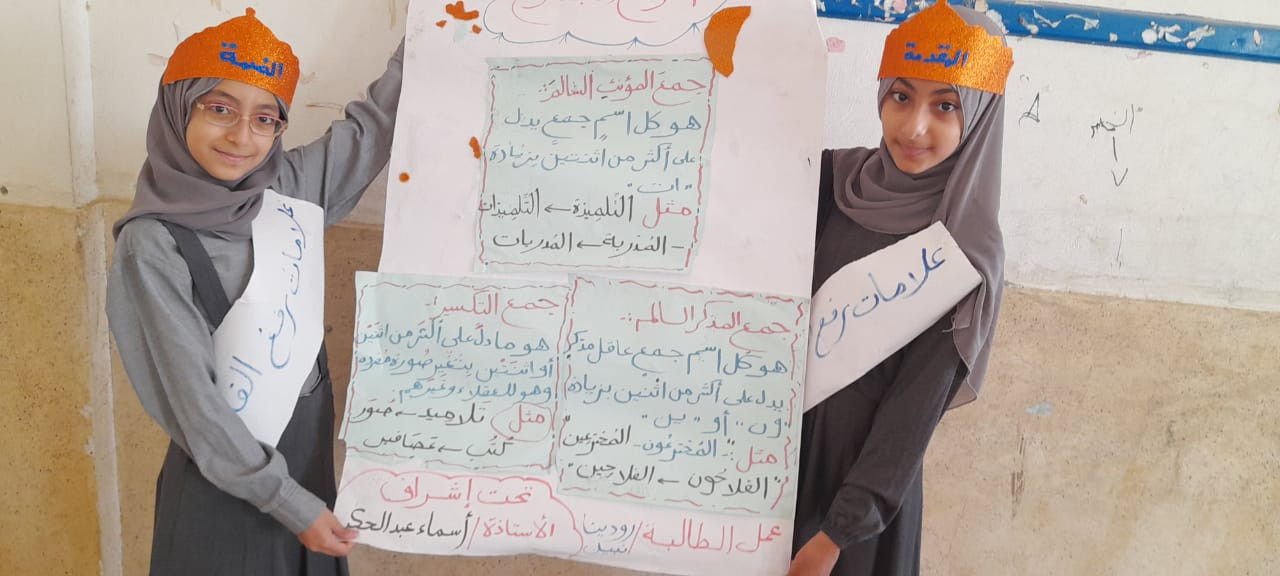 الضمة
المقدمة
جمع المؤنث السالم:
هو كل اسم جمع يدل
على أكثر من اثنتين بزيادة
"ات"
مثل التلميذة ← التلميذات
- المدربة ← المدربات
جمع المذكر السالم:
هو كل اسم جمع عاقل مذكر
يدل على أكثر من اثنين بزيادة
"ون" أو "ين"
مثل: المخترعون - المخترعين
"الفلاحون ← الفلاحين"
جمع التكسير:
هو ما دل على أكثر من اثنين
أو اثنتين بتغير صورة مفرده
وهو للعقلاء وغيرهم.
مثل تلاميذ ← صور
كتب ← عصافير
تحت إشراف
الأستاذة / أسماء عبد الحكي
عمل الطالبة / رودينا
نبيل
علامات رفع
علامات رفع